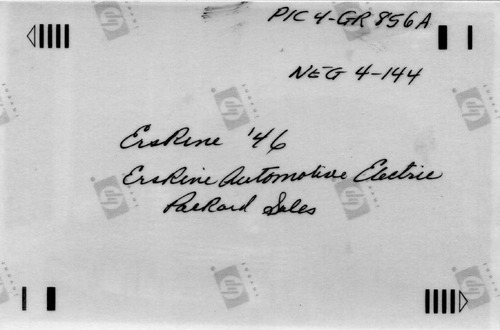 PIC 4-GR 856A
NEG 4-144
Erskine '46
Erskine Automotive Electric
Packard Sales
hp